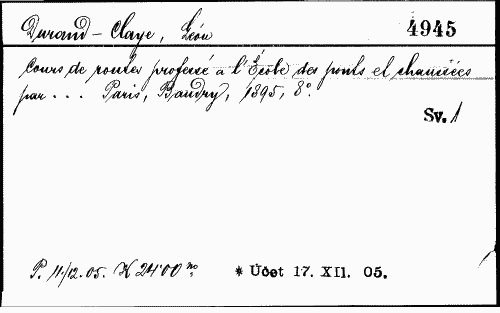 Durand-Claye, Léon 4945
Cours de routes professé à l'École des ponts et chaussées
par . . . Paris, Baudry, 1895, 8°.
Sv. 1
P. 11/12. 05. K 24'00 no, * Účet 17. XII. 05.